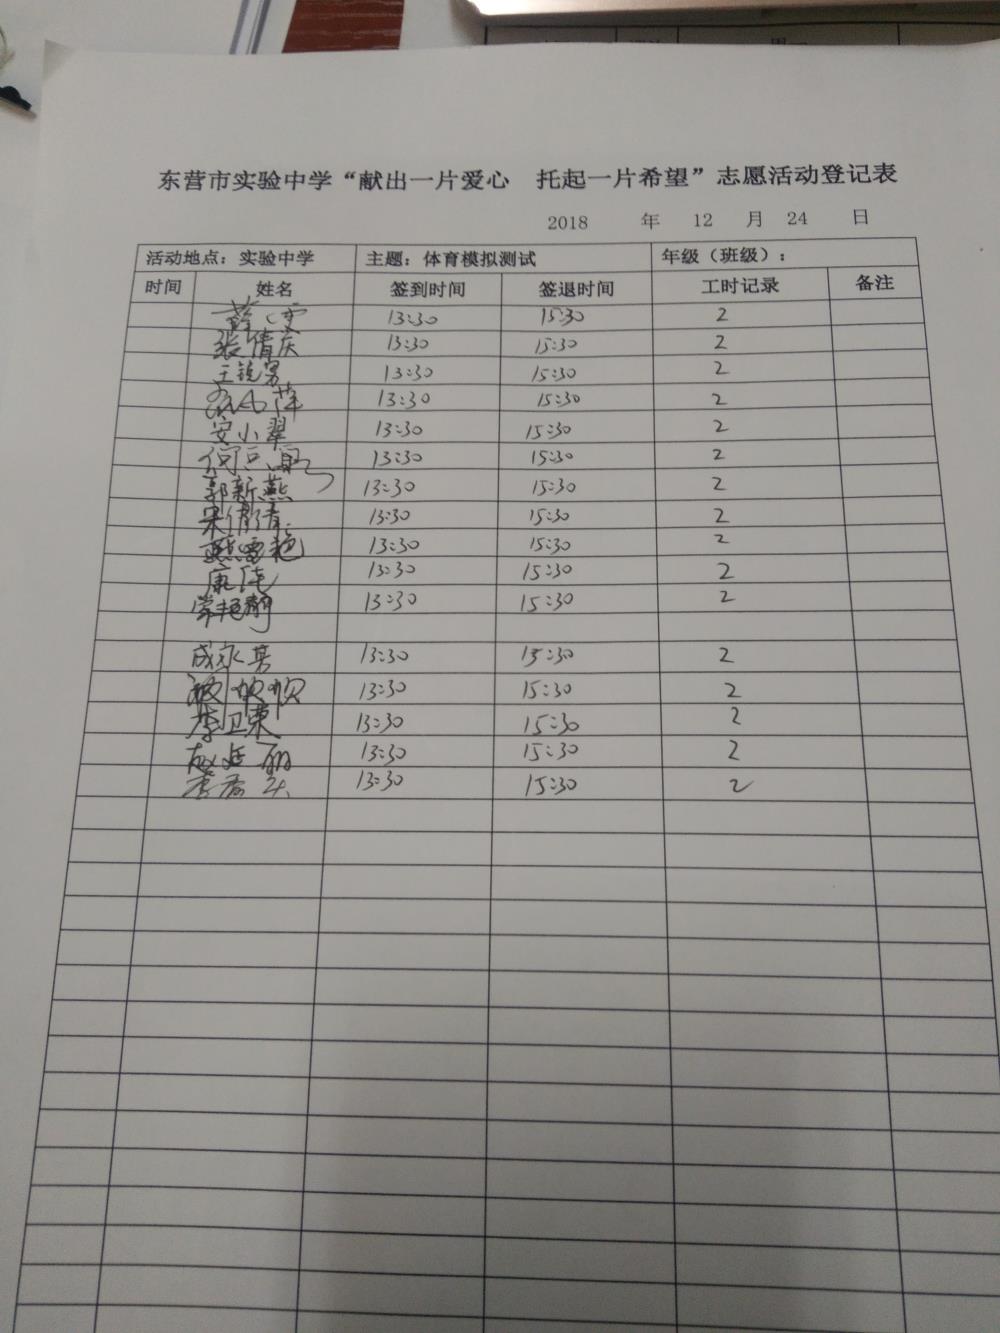 周一
东营市实验中学“献出一片爱心 托起一片希望”志愿活动登记表
2018 年 12 月 24 日
活动地点：实验中学 主题：体育模拟测试 年级（班级）：
时间 姓名 签到时间 签退时间 工时记录 备注
13:30 15:30 2
张倩庆 13:30 15:30 2
王锐男 13:30 15:30 2
13:30 15:30 2
安小翠 13:30 15:30 2
13:30 15:30 2
郭新燕 13:30 15:30 2
宋倩倩 13:30 15:30 2
燕雪艳 13:30 15:30 2
康 13:30 15:30 2
常艳静 13:30 15:30 2
成永 13:30 15:30 2
13:30 15:30 2
李卫东 13:30 15:30 2
赵廷丽 13:30 15:30 2
13:30 15:30 2